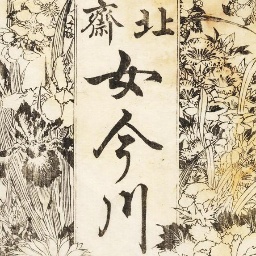 北齋
女今川